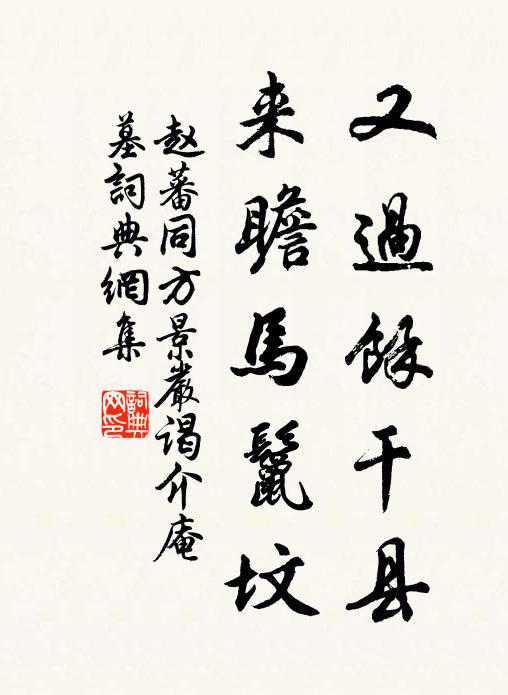 又過餘干县
来瞻馬鬣坟
赵蕃同方景嚴谒介庵
墓詞典網集
詞典网印